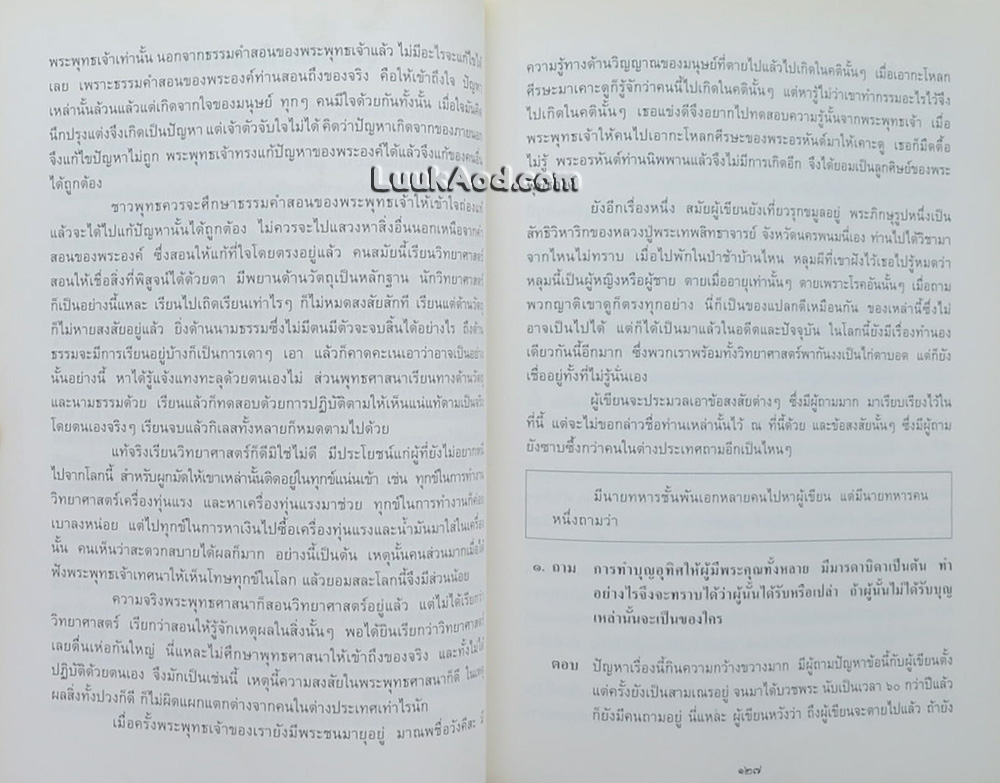 พระพุทธเจ้าเท่านั้น นอกจากธรรมคำสอนของพระพุทธเจ้าแล้ว ไม่มีอะไรจะแก้ไขได้
เลย เพราะธรรมคำสอนของพระองค์ท่านสอนถึงของจริง คือให้เข้าถึงใจ ปัญหา
เหล่านั้นล้วนแล้วแต่เกิดจากใจของมนุษย์ ทุกๆ คนมีใจด้วยกันทั้งนั้น เมื่อใจมันคิด
นึกปรุงแต่งจึงเกิดเป็นปัญหา แต่เจ้าตัวจับใจไม่ได้ คิดว่าปัญหาเกิดจากของภายนอก
จึงแก้ไขปัญหาไม่ถูก พระพุทธเจ้าทรงแก้ปัญหาของพระองค์ได้แล้วจึงแก้ของคนอื่น
ได้ถูกต้อง
ชาวพุทธควรจะศึกษาธรรมคำสอนของพระพุทธเจ้าให้เข้าใจถ่องแท้
แล้วจะได้ไปแก้ปัญหานั้นได้ถูกต้อง ไม่ควรจะไปแสวงหาสิ่งอื่นนอกเหนือจากคำ
สอนของพระองค์ ซึ่งสอนให้แก้ที่ใจโดยตรงอยู่แล้ว คนสมัยนี้เรียนวิทยาศาสตร์
สอนให้เชื่อสิ่งที่พิสูจน์ได้ด้วยตา มีพยานด้านวัตถุเป็นหลักฐาน นักวิทยาศาสตร์
ก็เป็นอย่างนี้แหละ เรียนไปเถิดเรียนเท่าไรๆ ก็ไม่หมดสงสัยสักที เรียนแต่ด้านวัตถุ
ก็ไม่หายสงสัยอยู่แล้ว ยิ่งด้านนามธรรมซึ่งไม่มีตนมีตัวจะจบสิ้นได้อย่างไร ถึงด้าน
ธรรมจะมีการเรียนอยู่บ้างก็เป็นการเดาๆ เอา แล้วก็คาดคะเนเอาว่าอาจเป็นอย่าง
นั้นอย่างนี้ หาได้รู้แจ้งแทงทะลุด้วยตนเองไม่ ส่วนพุทธศาสนาเรียนทางด้านวัตถุ
และนามธรรมด้วย เรียนแล้วก็ทดสอบด้วยการปฏิบัติตามให้เห็นแน่แท้ตามเป็นจริง
โดยตนเองจริงๆ เรียนจบแล้วกิเลสทั้งหลายก็หมดตามไปด้วย
แท้จริงเรียนวิทยาศาสตร์ก็ดีมิใช่ไม่ดี มีประโยชน์แก่ผู้ที่ยังไม่อยากหนี
ไปจากโลกนี้ สำหรับผูกมัดให้เขาเหล่านั้นติดอยู่ในทุกข์แน่นเข้า เช่น ทุกข์ในการทำงาน
วิทยาศาสตร์เครื่องทุ่นแรง และหาเครื่องทุ่นแรงมาช่วย ทุกข์ในการทำงานก็ค่อย
เบาลงหน่อย แต่ไปทุกข์ในการหาเงินไปซื้อเครื่องทุ่นแรงและน้ำมันมาใส่ในเครื่อง
นั้น คนเห็นว่าสะดวกสบายได้ผลก็มาก อย่างนี้เป็นต้น เหตุนั้นคนส่วนมากเมื่อได้
ฟังพระพุทธเจ้าเทศนาให้เห็นโทษทุกข์ในโลก แล้วยอมสละโลกนี้จึงมีส่วนน้อย
ความจริงพระพุทธศาสนาก็สอนวิทยาศาสตร์อยู่แล้ว แต่ไม่ได้เรียกว่า
วิทยาศาสตร์ เรียกว่าสอนให้รู้จักเหตุผลในสิ่งนั้นๆ พอได้ยินเรียกว่าวิทยาศาสตร์
เลยตื่นเห่อกันใหญ่ นี่แหละไม่ศึกษาพุทธศาสนาให้เข้าถึงของจริง และทั้งไม่ได้
ปฏิบัติด้วยตนเอง จึงมักเป็นเช่นนี้ เหตุนี้ความสงสัยในพระพุทธศาสนาก็ดี ในเหตุ
ผลสิ่งทั้งปวงก็ดี ก็ไม่ผิดแผกแตกต่างจากคนในต่างประเทศเท่าไรนัก
เมื่อครั้งพระพุทธเจ้าของเรายังมีพระชนมายุอยู่ มาณพชื่อวังคีสะ มี
ความรู้ทางด้านวิญญาณของมนุษย์ที่ตายไปแล้วไปเกิดในคตินั้นๆ เมื่อเอากะโหลก
ศีรษะมาเคาะดูก็รู้จักว่าคนนี้ไปเกิดในคตินั้นๆ แต่หารู้ไม่ว่าเขาทำกรรมอะไรไว้จึง
ไปเกิดในคตินั้นๆ เธอแข่งดีจึงอยากไปทดสอบความรู้นั้นจากพระพุทธเจ้า เมื่อ
พระพุทธเจ้าให้คนไปเอากะโหลกศีรษะของพระอรหันต์มาให้เคาะดู เธอก็มืดตื้อ
ไม่รู้ พระอรหันต์ท่านนิพพานแล้วจึงไม่มีการเกิดอีก จึงได้ยอมเป็นลูกศิษย์ของพระ
LuukAod.com
ยังอีกเรื่องหนึ่ง สมัยผู้เขียนยังเที่ยวรุกขมูลอยู่ พระภิกษุรูปหนึ่งเป็น
สัทธิวิหาริกของหลวงปู่พระเทพสิทธาจารย์ จังหวัดนครพนมนี่เอง ท่านไปได้วิชามา
จากไหนไม่ทราบ เมื่อไปพักในป่าช้าบ้านไหน หลุมผีที่เขาฝังไว้เธอไปรู้หมดว่า
หลุมนี้เป็นผู้หญิงหรือผู้ชาย ตายเมื่ออายุเท่านั้นๆ ตายเพราะโรคอันนั้นๆ เมื่อถาม
พวกญาติเขาดูก็ตรงทุกอย่าง นี่ก็เป็นของแปลกดีเหมือนกัน ของเหล่านี้ซึ่งไม่
อาจเป็นไปได้ แต่ก็ได้เป็นมาแล้วในอดีตและปัจจุบัน ในโลกนี้ยังมีเรื่องทำนอง
เดียวกันนี้อีกมาก ซึ่งพวกเราพร้อมทั้งวิทยาศาสตร์พากันงงเป็นไก่ตาบอด แต่ก็ยัง
เชื่ออยู่ทั้งที่ไม่รู้นั่นเอง
ผู้เขียนจะประมวลเอาข้อสงสัยต่างๆ ซึ่งมีผู้ถามมาก มาเรียบเรียงไว้ใน
ที่นี้ แต่จะไม่ขอกล่าวชื่อท่านเหล่านั้นไว้ ณ ที่นี้ด้วย และข้อสงสัยนั้นๆ ซึ่งมีผู้ถาม
ยังซาบซึ้งกว่าคนในต่างประเทศถามอีกเป็นไหนๆ
มีนายทหารชั้นพันเอกหลายคนไปหาผู้เขียน แต่มีนายทหารคน
หนึ่งถามว่า
๑. ถาม การทำบุญอุทิศให้ผู้มีพระคุณทั้งหลาย มีมารดาบิดาเป็นต้น ทำ
อย่างไรจึงจะทราบได้ว่าผู้นั้นได้รับหรือเปล่า ถ้าผู้นั้นไม่ได้รับบุญ
เหล่านั้นจะเป็นของใคร
ตอบ ปัญหาเรื่องนี้กินความกว้างขวางมาก มีผู้ถามปัญหาข้อนี้กับผู้เขียนตั้ง
แต่ครั้งยังเป็นสามเณรอยู่ จนมาได้บวชพระ นับเป็นเวลา ๖๐ กว่าปีแล้ว
ก็ยังมีคนถามอยู่ นี่แหละ ผู้เขียนหวังว่า ถึงผู้เขียนจะตายไปแล้ว ถ้ายัง
๑๒๗